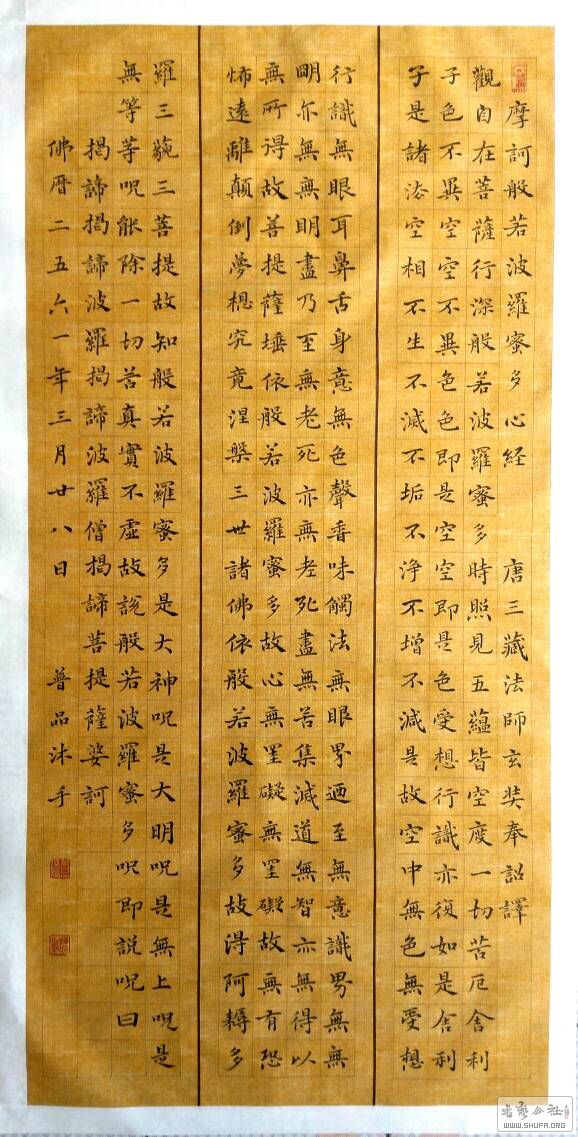 摩訶般若波羅蜜多心経 唐三藏法師玄奘奉詔譯
觀自在菩薩行深般若波羅蜜多時照見五蘊皆空度一切苦厄舍利
子色不異空空不異色色即是空空即是色受想行識亦復如是舍利
子是諸法空相不生不滅不垢不淨不增不減是故空中無色無受想
行識無眼耳鼻舌身意無色聲香味觸法無眼界廼至無意識界無無
明亦無無明盡乃至無老死亦無老死盡無苦集滅道無智亦無得以
無所得故菩提薩埵依般若波羅蜜多故心無罣礙無罣礙故無有恐
怖遠離顛倒夢想究竟涅槃三世諸佛依般若波羅蜜多故得阿耨多
羅三藐三菩提故知般若波羅蜜多是大神呪是大明呪是無上呪是
無等等呪能除一切苦真實不虛故說般若波羅蜜多呪即說呪曰
揭諦揭諦波羅揭諦波羅僧揭諦菩提薩婆訶
佛曆二五六一年三月廿八日 普品沐手
书艺公社
WWW.SHUFA.ORG